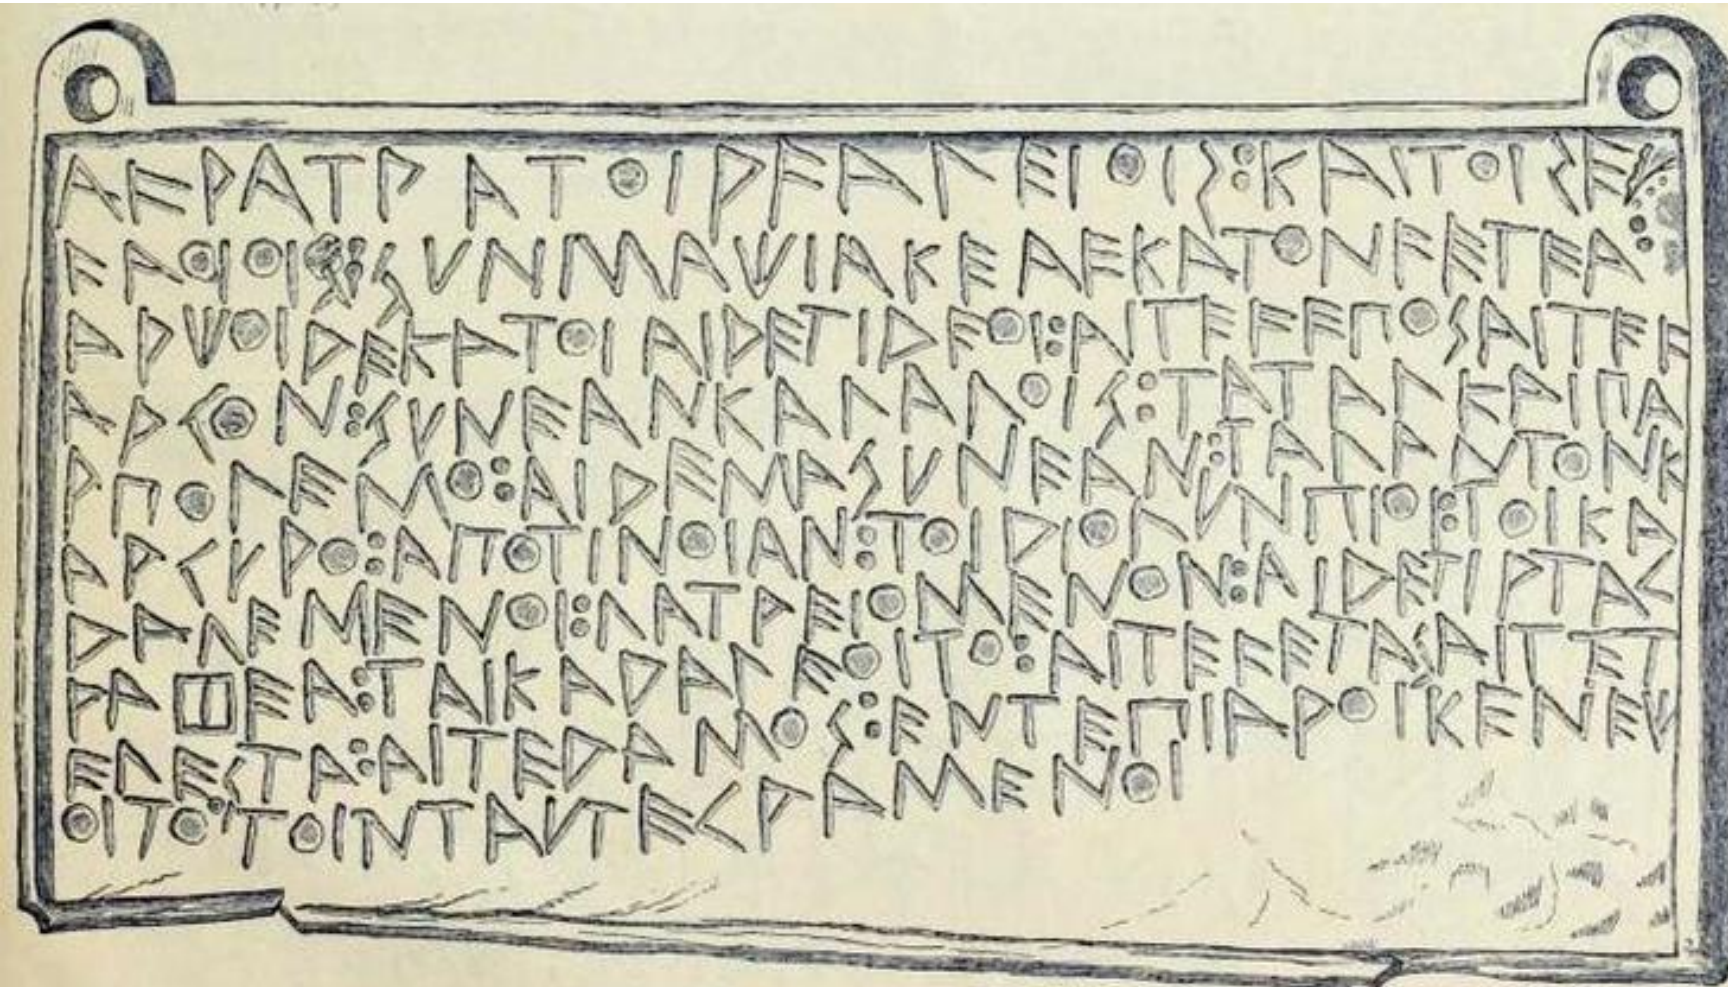 ΑϜΡΑΤΡΑΤΟΙΡϜΑΛΕΙΟΙΣ:ΚΑΙΤΟΙΣΕΡ
ϜΑΟΙΟΙΣ:ΣΥΝΜΑΧΙΑΚΕΑΕΚΑΤΟΝϜΕΤΕΑ
ΑΡΧΟΙΔΕΚΑΤΟΙΑΙΔΕΤΙΔΕΟΙ:ΑΙΤΕϜΕΠΟΣΑΙΤΕϜ
ΑΡΓΟΝ:ΣΥΝΕΑΝΚΑΛΑΛΟΙΣ:ΤΑΤΑΛΚΑΙΠΑ
ΡΠΟΛΕΜΟ:ΑΙΔΕΜΑΣΥΝΕΑΝ:ΤΑΛΑΝΤΟΝΚ
ΑΡΓΥΡΟ:ΑΠΟΤΙΝΟΙΑΝ:ΤΟΙΔΙΟΛΥΝΠΙΟΙ:ΤΟΙΚΑ
ΔΑΛΕΜΕΝΟΙ:ΛΑΤΡΕΙΟΜΕΝΟΝ:ΑΙΔΕΤΙΡΤΑΓ
ΡΑΦΕΑ:ΤΑΙΚΑΔΑΛΕΟΙΤΟ:ΑΙΤΕϜΕΤΑΣΑΙΤΕΤ
ΕΛΕΣΤΑ:ΑΙΤΕΔΑΜΟΣ:ΕΝΤΕΠΙΑΡΟΙΚΕΝΕΧ
ΟΙΤΟ:ΤΟΙΝΤΑΥΤΕΓΡΑΜΕΝΟΙ